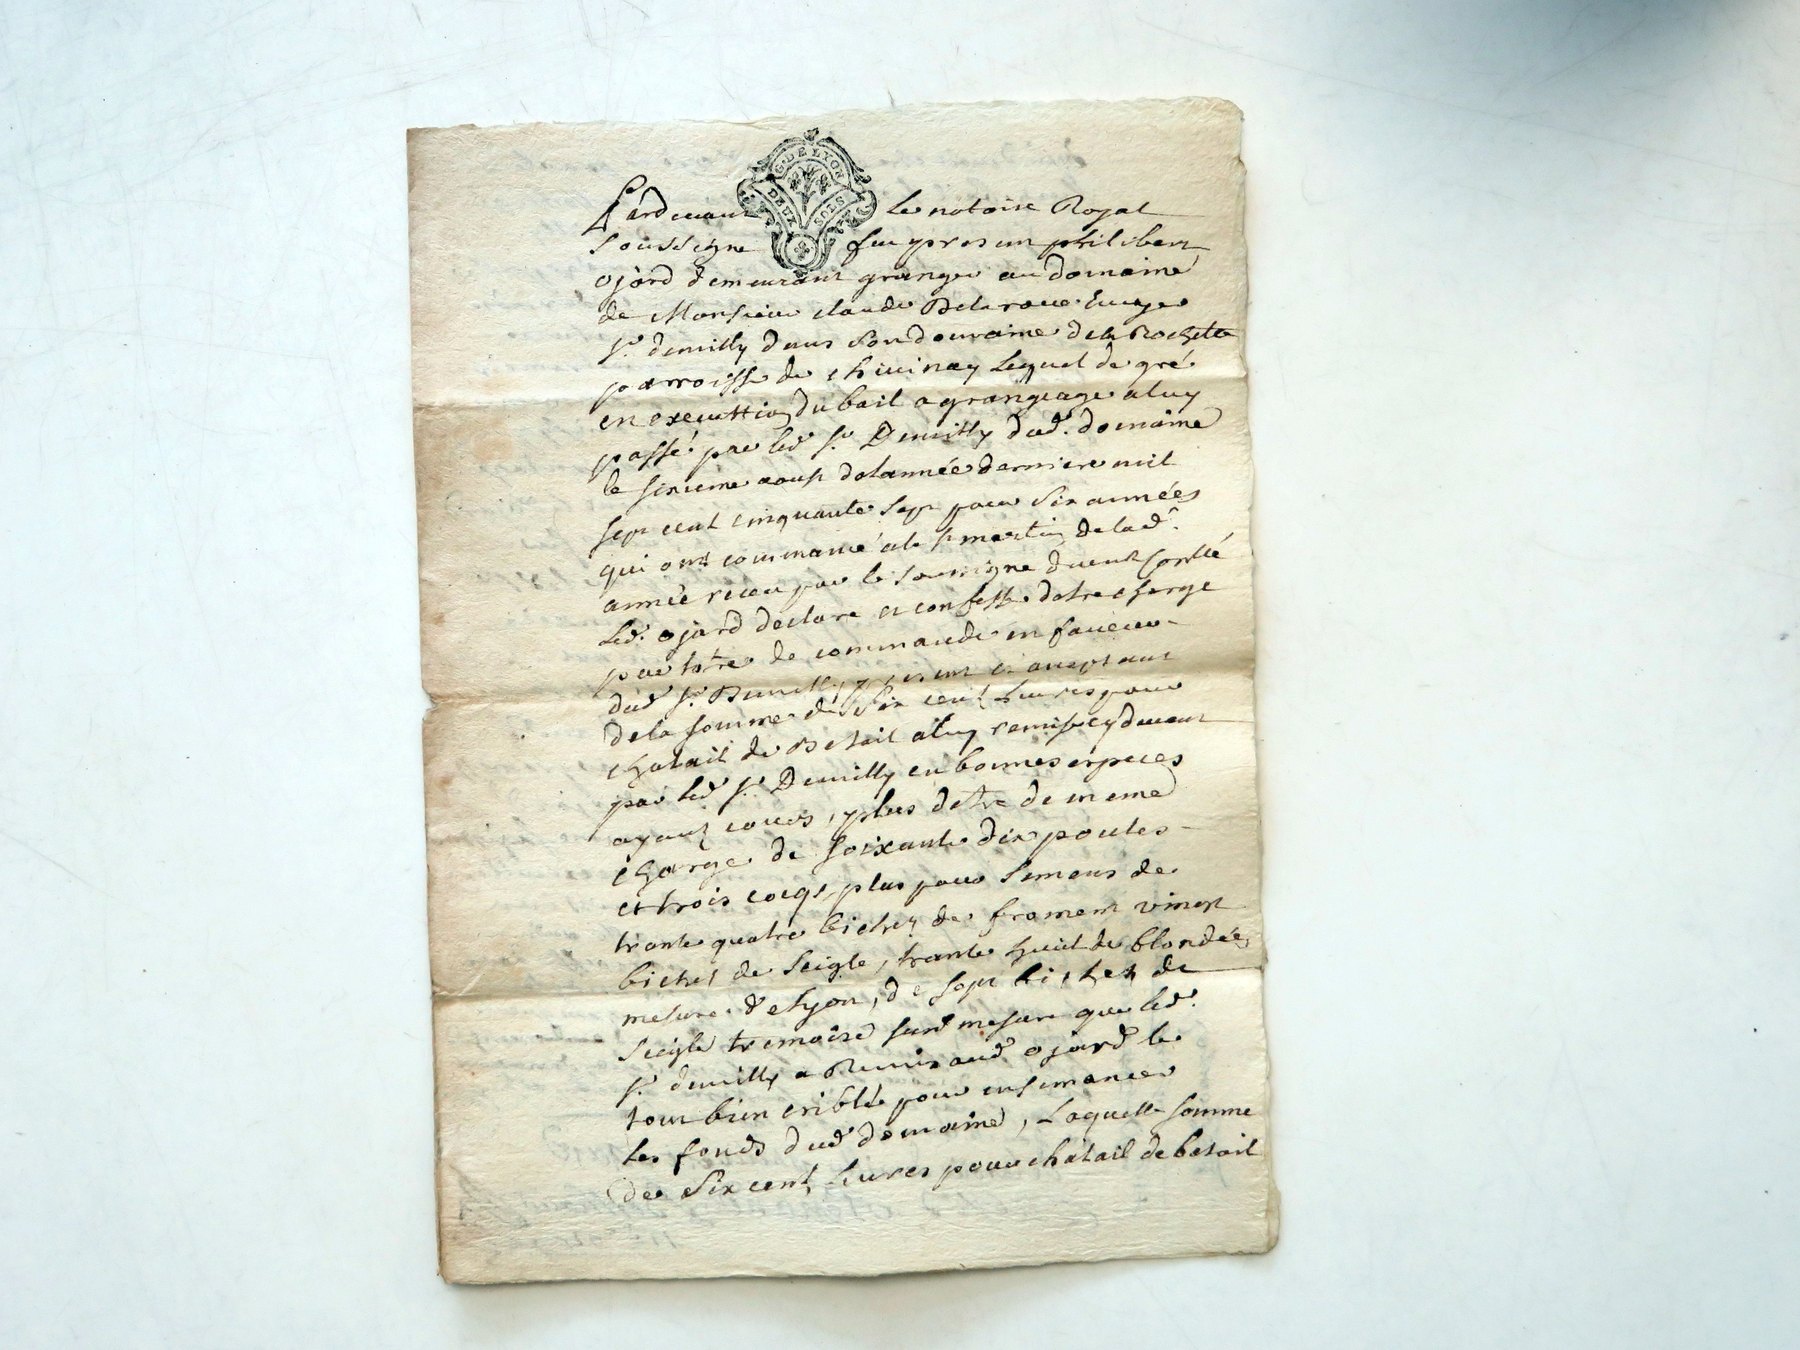 G. DE LYON
DEUX SOLS
Pardevant le notaire Royal
soussigne fut present philibert
ojard demeurant granger au domaine
de Monsieur claude Delaroue Ecuyer
sr. demilly dans son domaine dela Rochette
parroisse de chivinay Lequel de gré
en execution du bail a grangeage a luy
passé par led sr. Demilly dud. domaine
le sixieme aoust delannée derniere mil
sept cent cinquante sept pour six années
qui ont commancé ala st martin delad.
année receu par le soussigne duement conllé
led. ojard declare et confesse detre chargé
par titre de commande en faveur
dud sr. Demilly present et aceptant
dela somme de six cent livres pour
chatail de Betail a luy remise cy devant
par led sr. Demilly en bonnes especes
ayant cours, plus detre de meme
chargé de soixante dix poules
et trois cocqs, plus pour semens de
trante quatre bichet de froment vingt
bichet de seigle, trante huit de blondée,
mesure de Lyon, de sept bichet de
seigle tremoise sud mesure que led.
sr. demilly a Remis aud ojard le
tout bien criblée pour ensemancer
les fonds dud domaine, Laquelle somme
de six cent livres pour chatail de betail